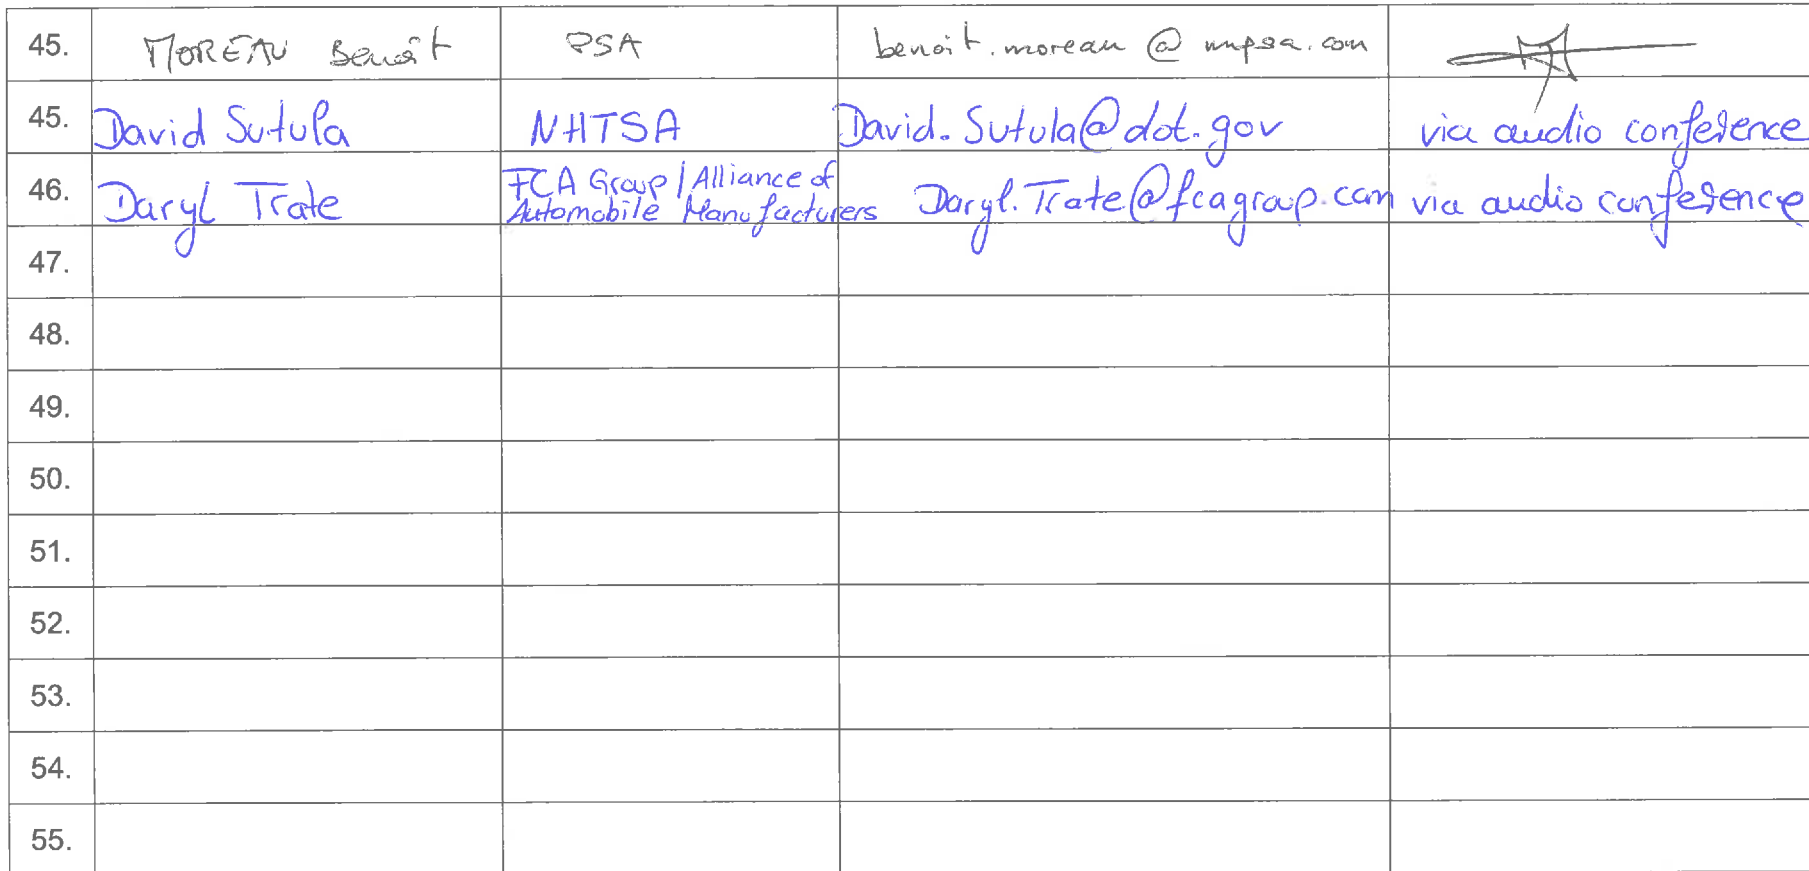 45. MOREAU Benoît PSA benoit.moreau @ mpsa.com
45. David Sutula NHTSA David.Sutula@dot.gov via audio conference
46. Daryl Trate FCA Group / Alliance of Automobile Manufacturers Daryl.Trate@fcagroup.com via audio conference
47.
48.
49.
50.
51.
52.
53.
54.
55.